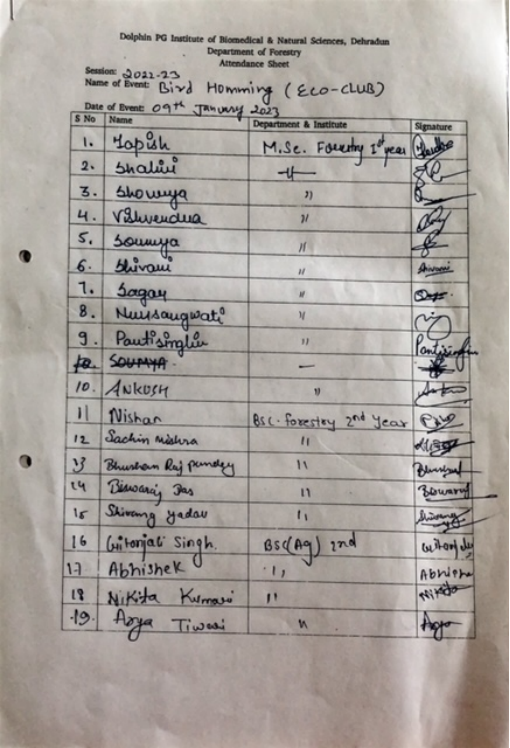 Dolphin PG Institute of Biomedical & Natural Sciences, Dehradun
Department of Forestry
Attendance Sheet
Session: 2022-23
Name of Event: Bird Homming (ECO-CLUB)
Date of Event: 09th January 2023
S No Name Department & Institute Signature
1. Tapish M.Sc. Forestry Ist year
2. Shalini –〃–
3. Showya 〃
4. Vishvendra 〃
5. Soumya 〃
6. Shivani 〃 Shivani
7. Sagar 〃
8. 〃
9. Pantisinghiu 〃 Pantisinghiu
10. SOUMYA —
10. ANKUSH 〃
11 Nishan BSc. forestry 2nd Year
12 Sachin mishra 〃
13 Bhushan Raj pandey 〃 Bhushan
14 Biswaraj Das 〃 Biswaraj
15 Shivang yadav 〃 Shivang
16 Gitanjali Singh. BSc(Ag) 2nd
17. Abhishek 〃
18 Nikita Kumari 〃 Nikita
19. Arya Tiwari 〃 Arya